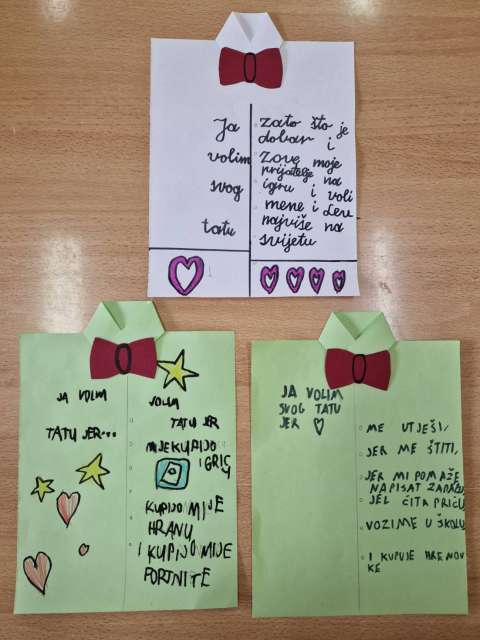 Ja
volim
svog
tatu
zato što je
dobar i
zove moje
prijatelje na
igru i voli
mene i Levu
najviše na
svijetu
JA VOLIM
TATU JER...
VOLIM
TATU JER
MIJEKUPIJO
IGRICU
KUPIJO MIJE
HRANU
I KUPIJO MIJE
FORTNITE
JA VOLIM
SVOG TATU
JER
ME UTJEŠI,
JER ME ŠTITI,
JER MI POMAŽE
NAPISAT ZADAĆU
JEL ČITA PRIČU
VOZIME U ŠKOLU
I KUPUJE HRENOV
KE